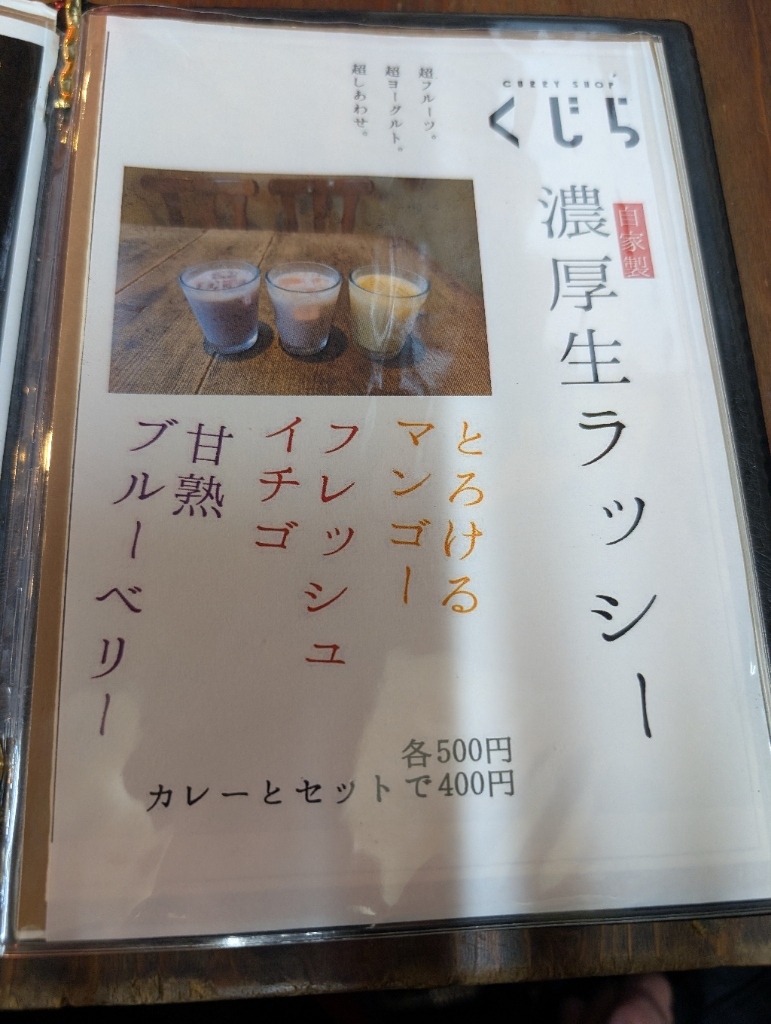 CURRY SHOP
くじら
自家製
濃厚生ラッシー
超フルーツ。
超ヨーグルト。
超しあわせ。
とろける
マンゴー
フレッシュ
イチゴ
甘熟
ブルーベリー
各500円
カレーとセットで400円